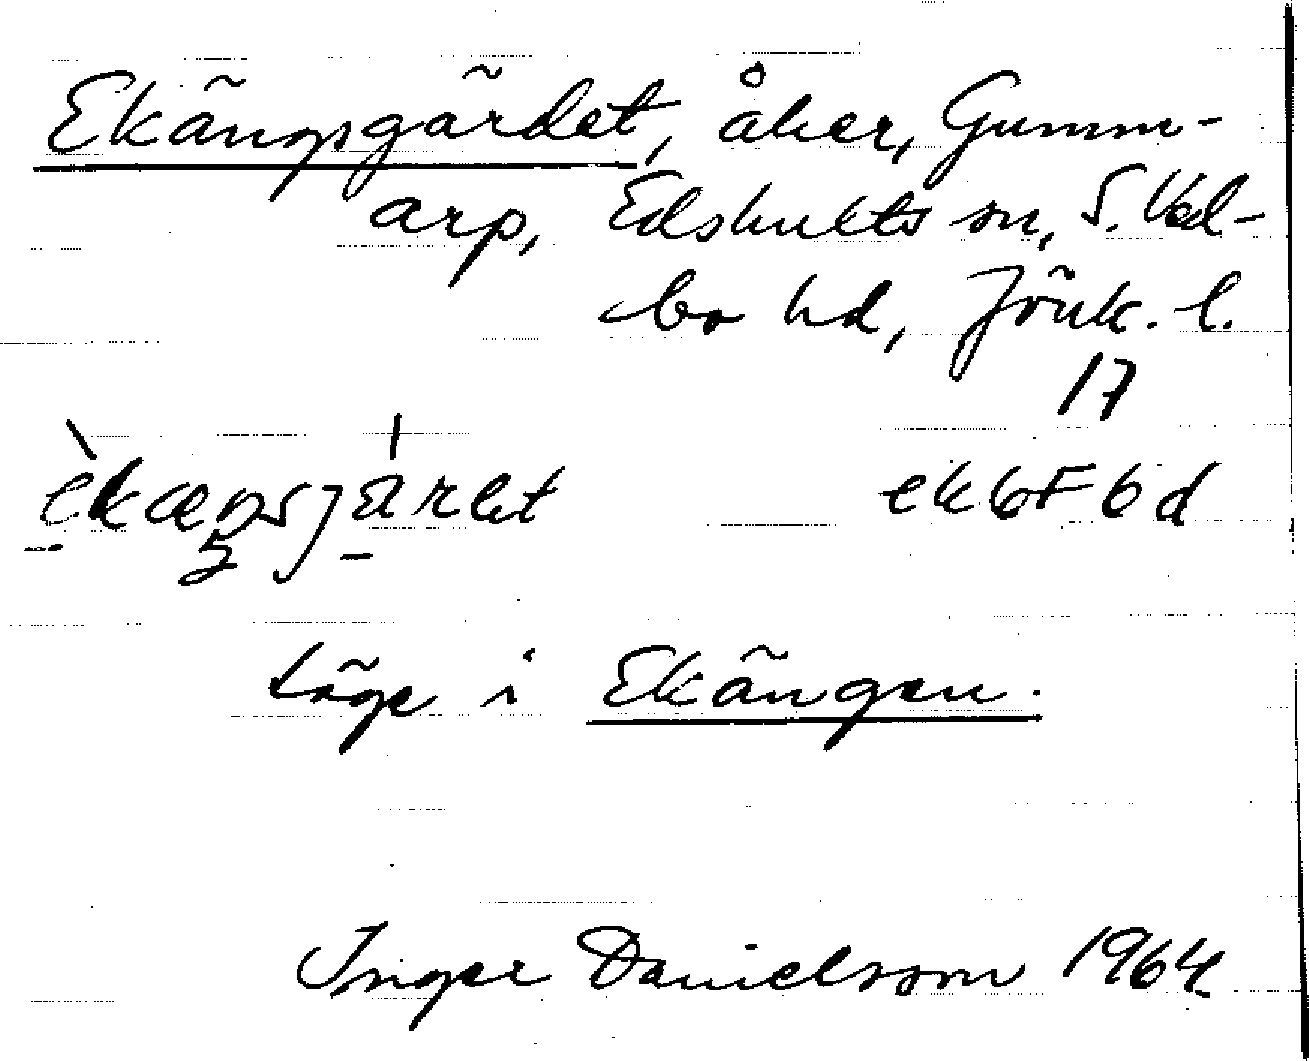 Ekängsgärdet, åker, Gumm-
arp, Edshults sn, S. Ved-
bo hd, Jönk. l.
17
ek6F6d
Läge i Ekängen.
Inger Danielsson 1964